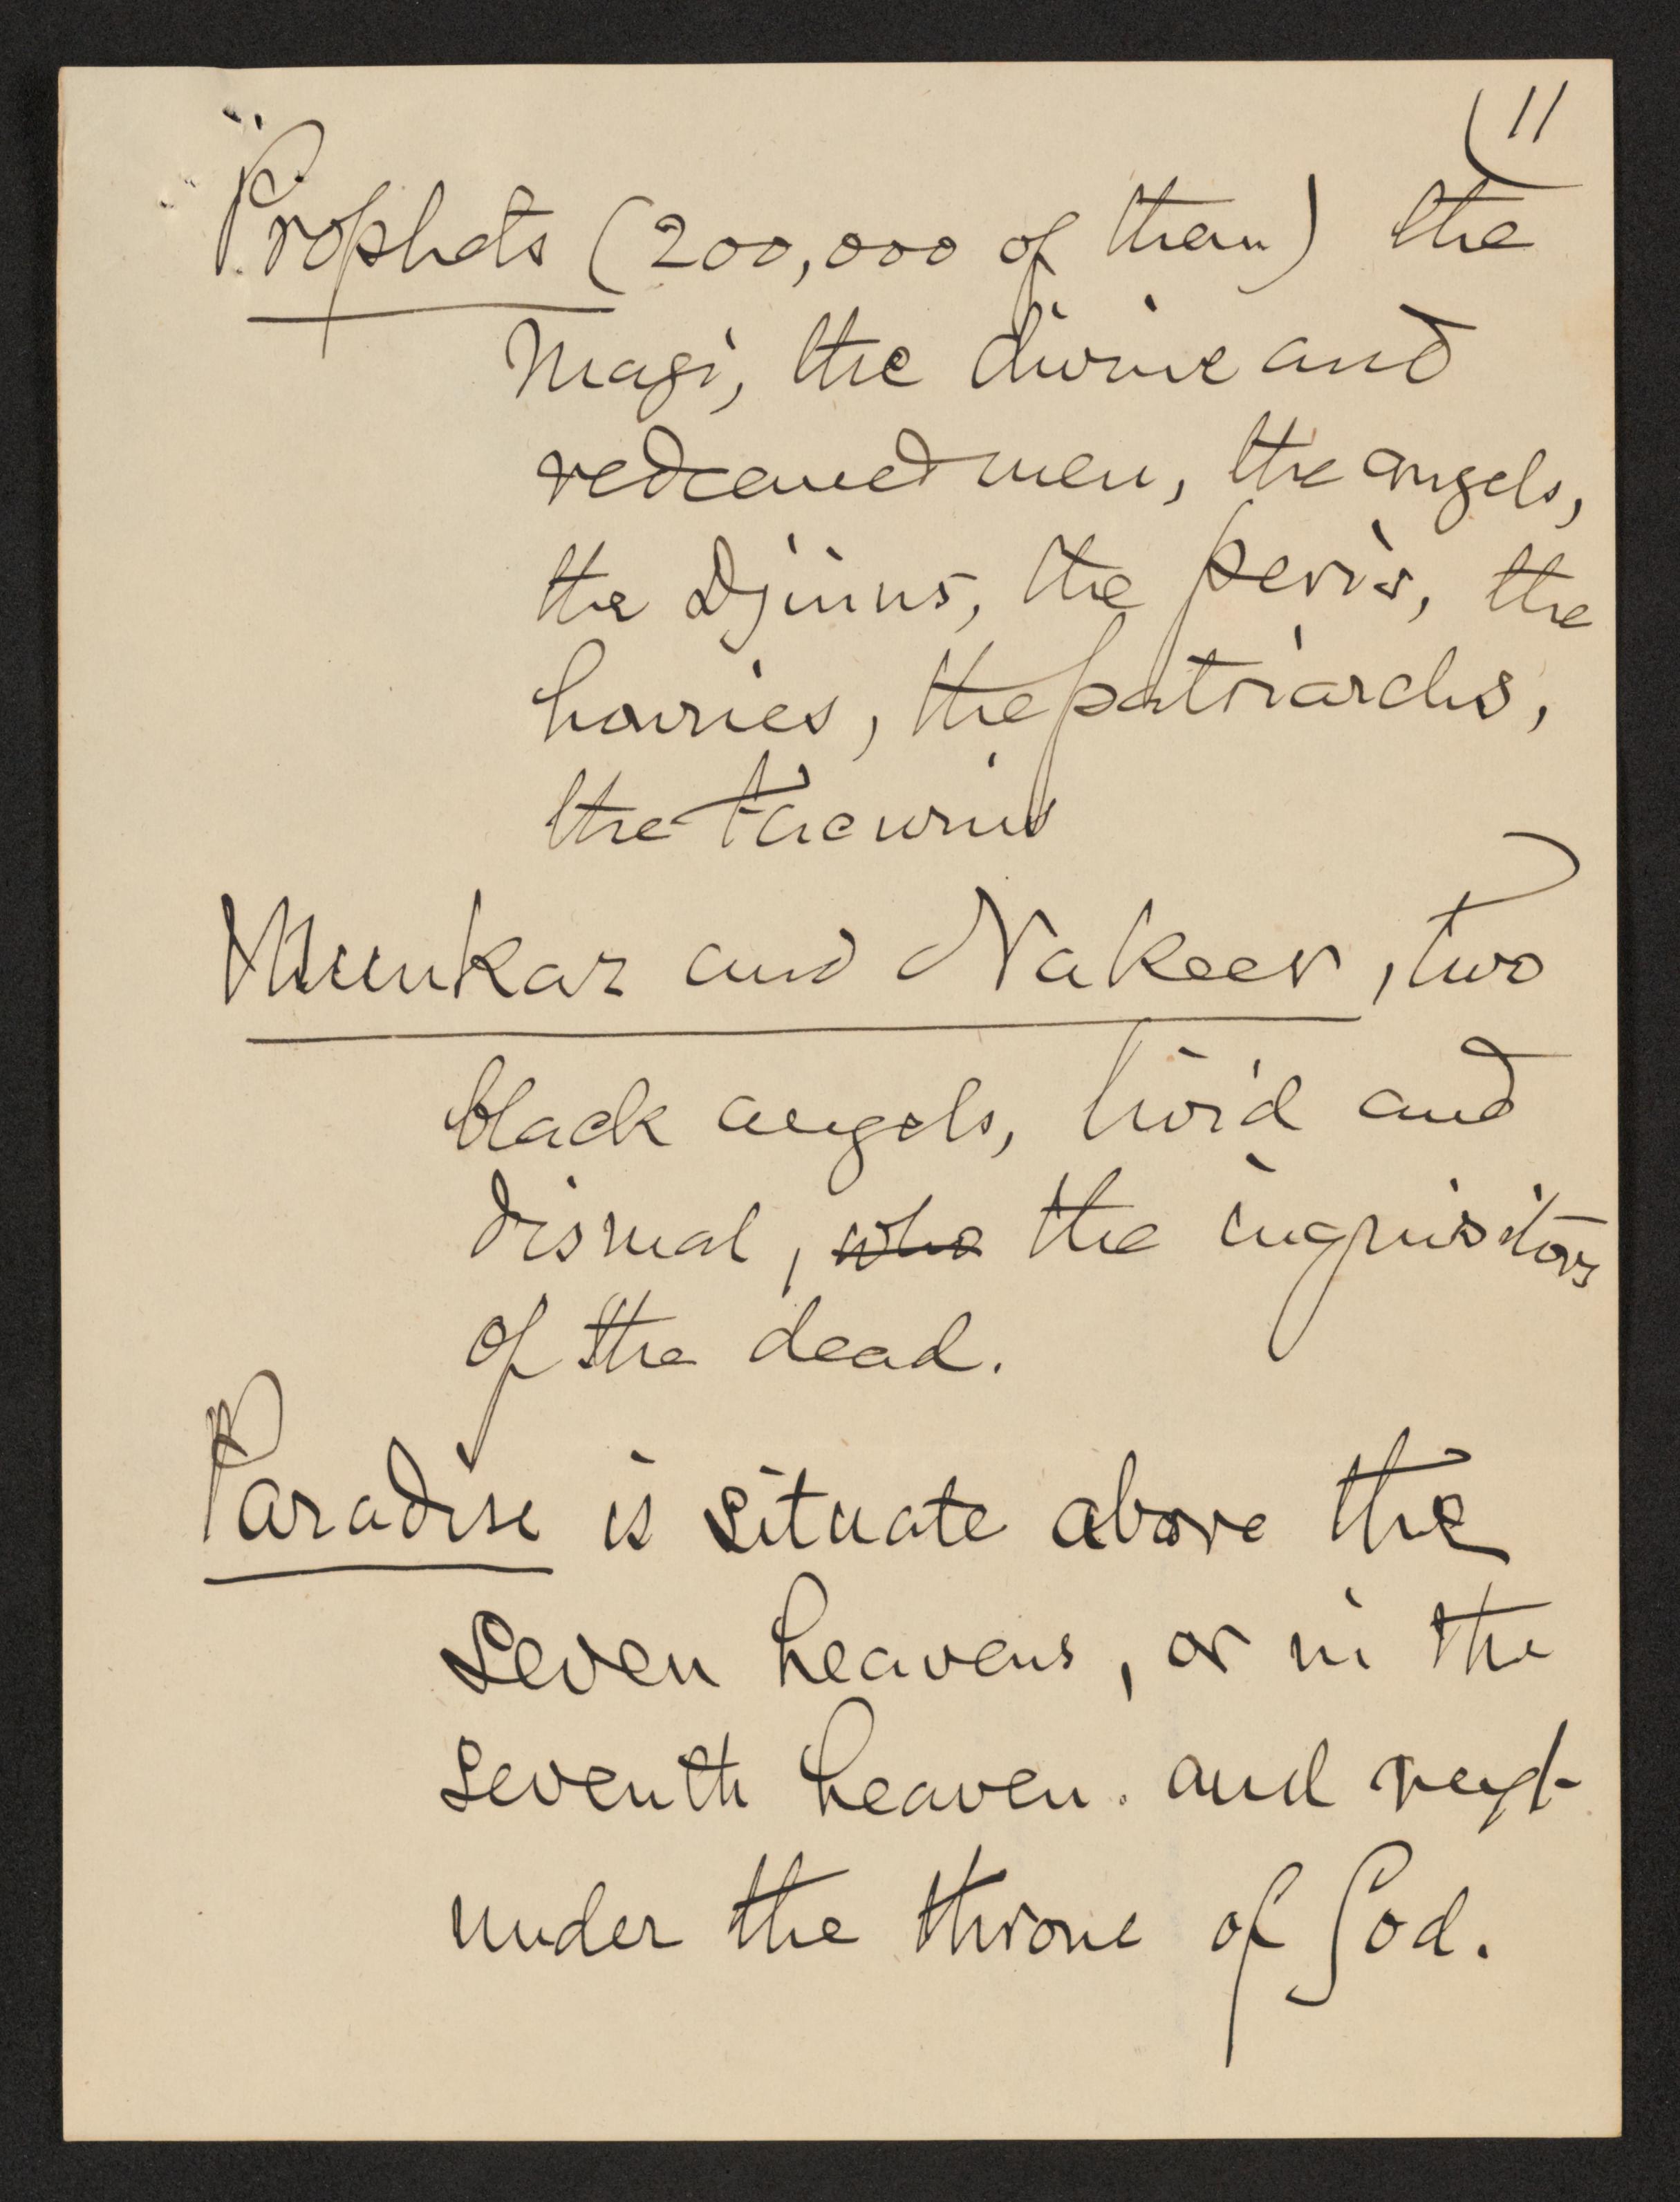 11
Prophets (200,000 of them) the
Magi, the divine and
redeemed men, the angels,
the Djinns, the peris, the
houries, the patriarchs,
the
Munkar and Nakeer, two
black angels, livid and
dismal, who the inquisitors
of the dead.
Paradise is situate above the
seven heavens, or in the
seventh heaven. and next
under the throne of God.